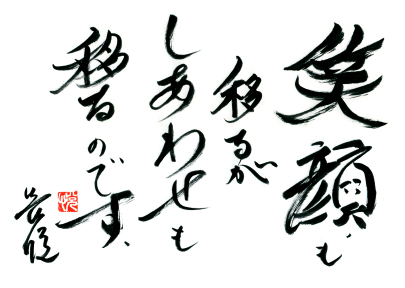 笑顔も
移るが
しあわせも
移るのです、